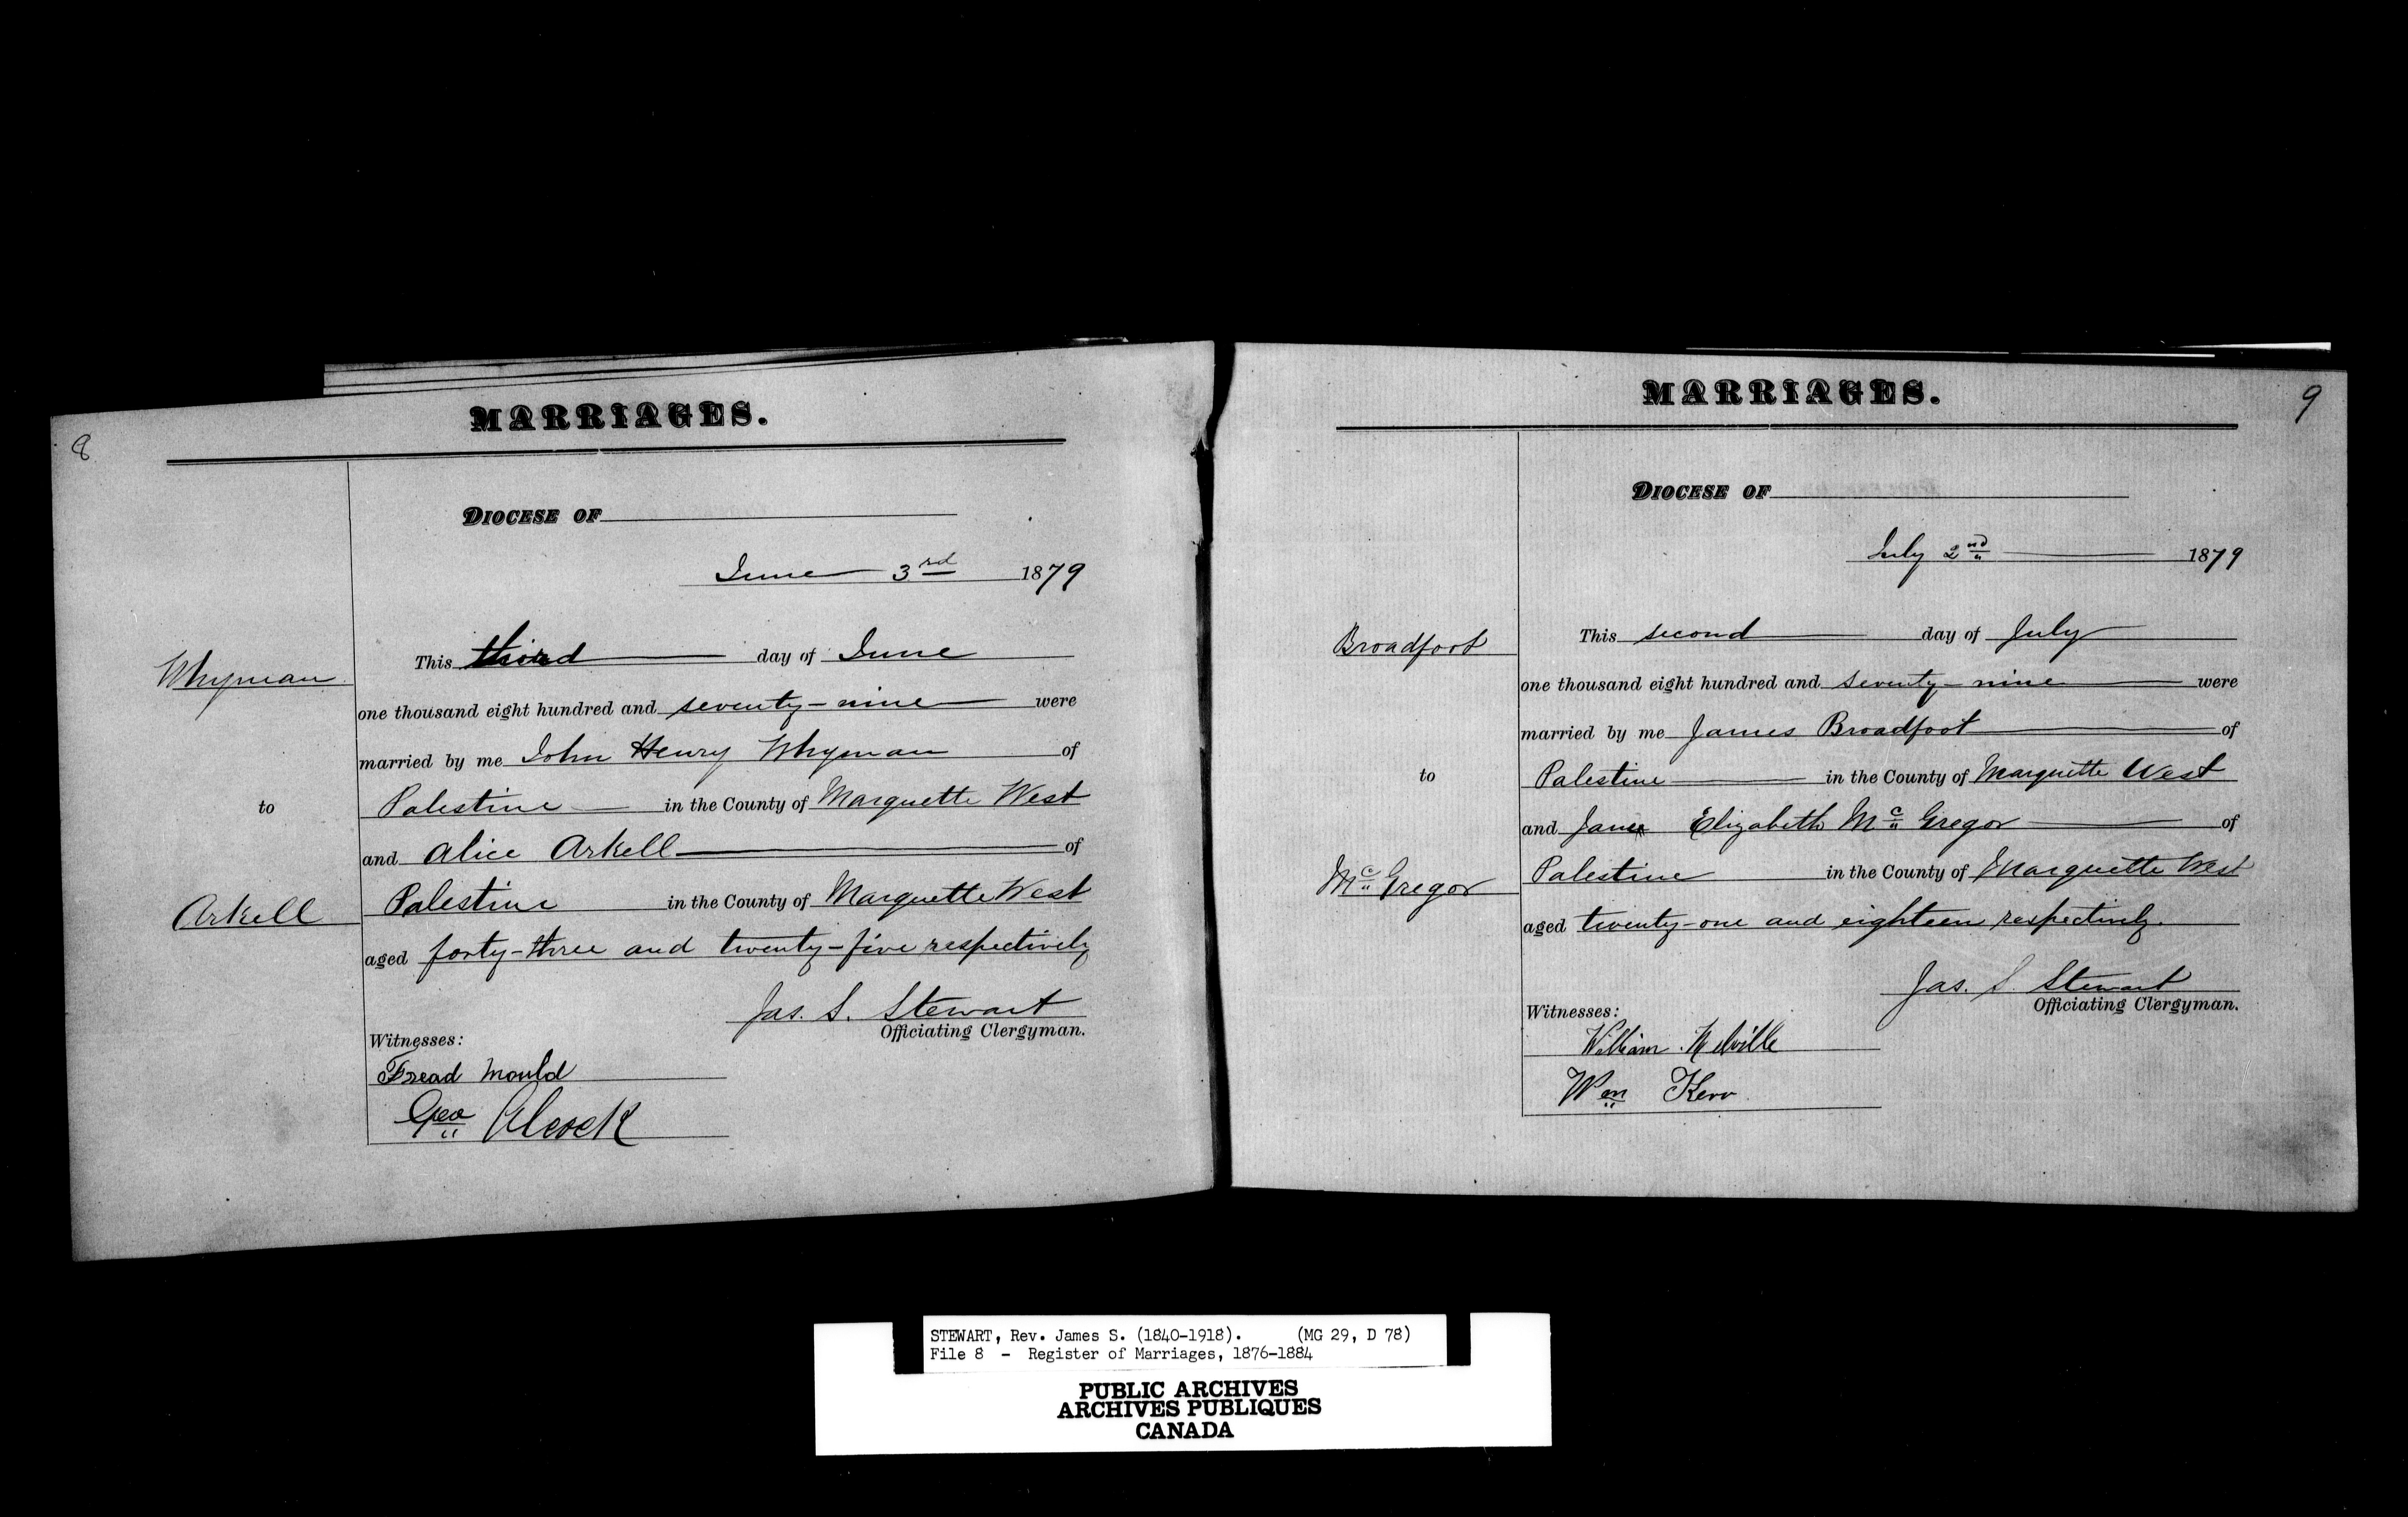 8
MARRIAGES.
DIOCESE OF
June 3rd 1879
Whyman
to
Arkell
This third day of June
one thousand eight hundred and seventy-nine were
married by me John Henry Whyman of
Palestine in the County of Marquette West
and Alice Arkell of
Palestine in the County of Marquette West
aged forty-three and twenty-five respectively
Jas. S. Stewart
Officiating Clergyman.
Witnesses:
Fread Mould
Geo Alcock
9
MARRIAGES.
DIOCESE OF
July 2nd 1879
Broadfoot
to
Mc Gregor
This second day of July
one thousand eight hundred and seventy-nine were
married by me James Broadfoot of
Palestine in the County of Marquette West
and Jane Elizabeth Mc Gregor of
Palestine in the County of Marquette West
aged twenty-one and eighteen respectively.
Jas. S Stewart
Officiating Clergyman.
Witnesses:
William Melville
Wm Kerr
STEWART, Rev. James S. (1840-1918). (MG 29, D 78)
File 8 - Register of Marriages, 1876-1884
PUBLIC ARCHIVES
ARCHIVES PUBLIQUES
CANADA